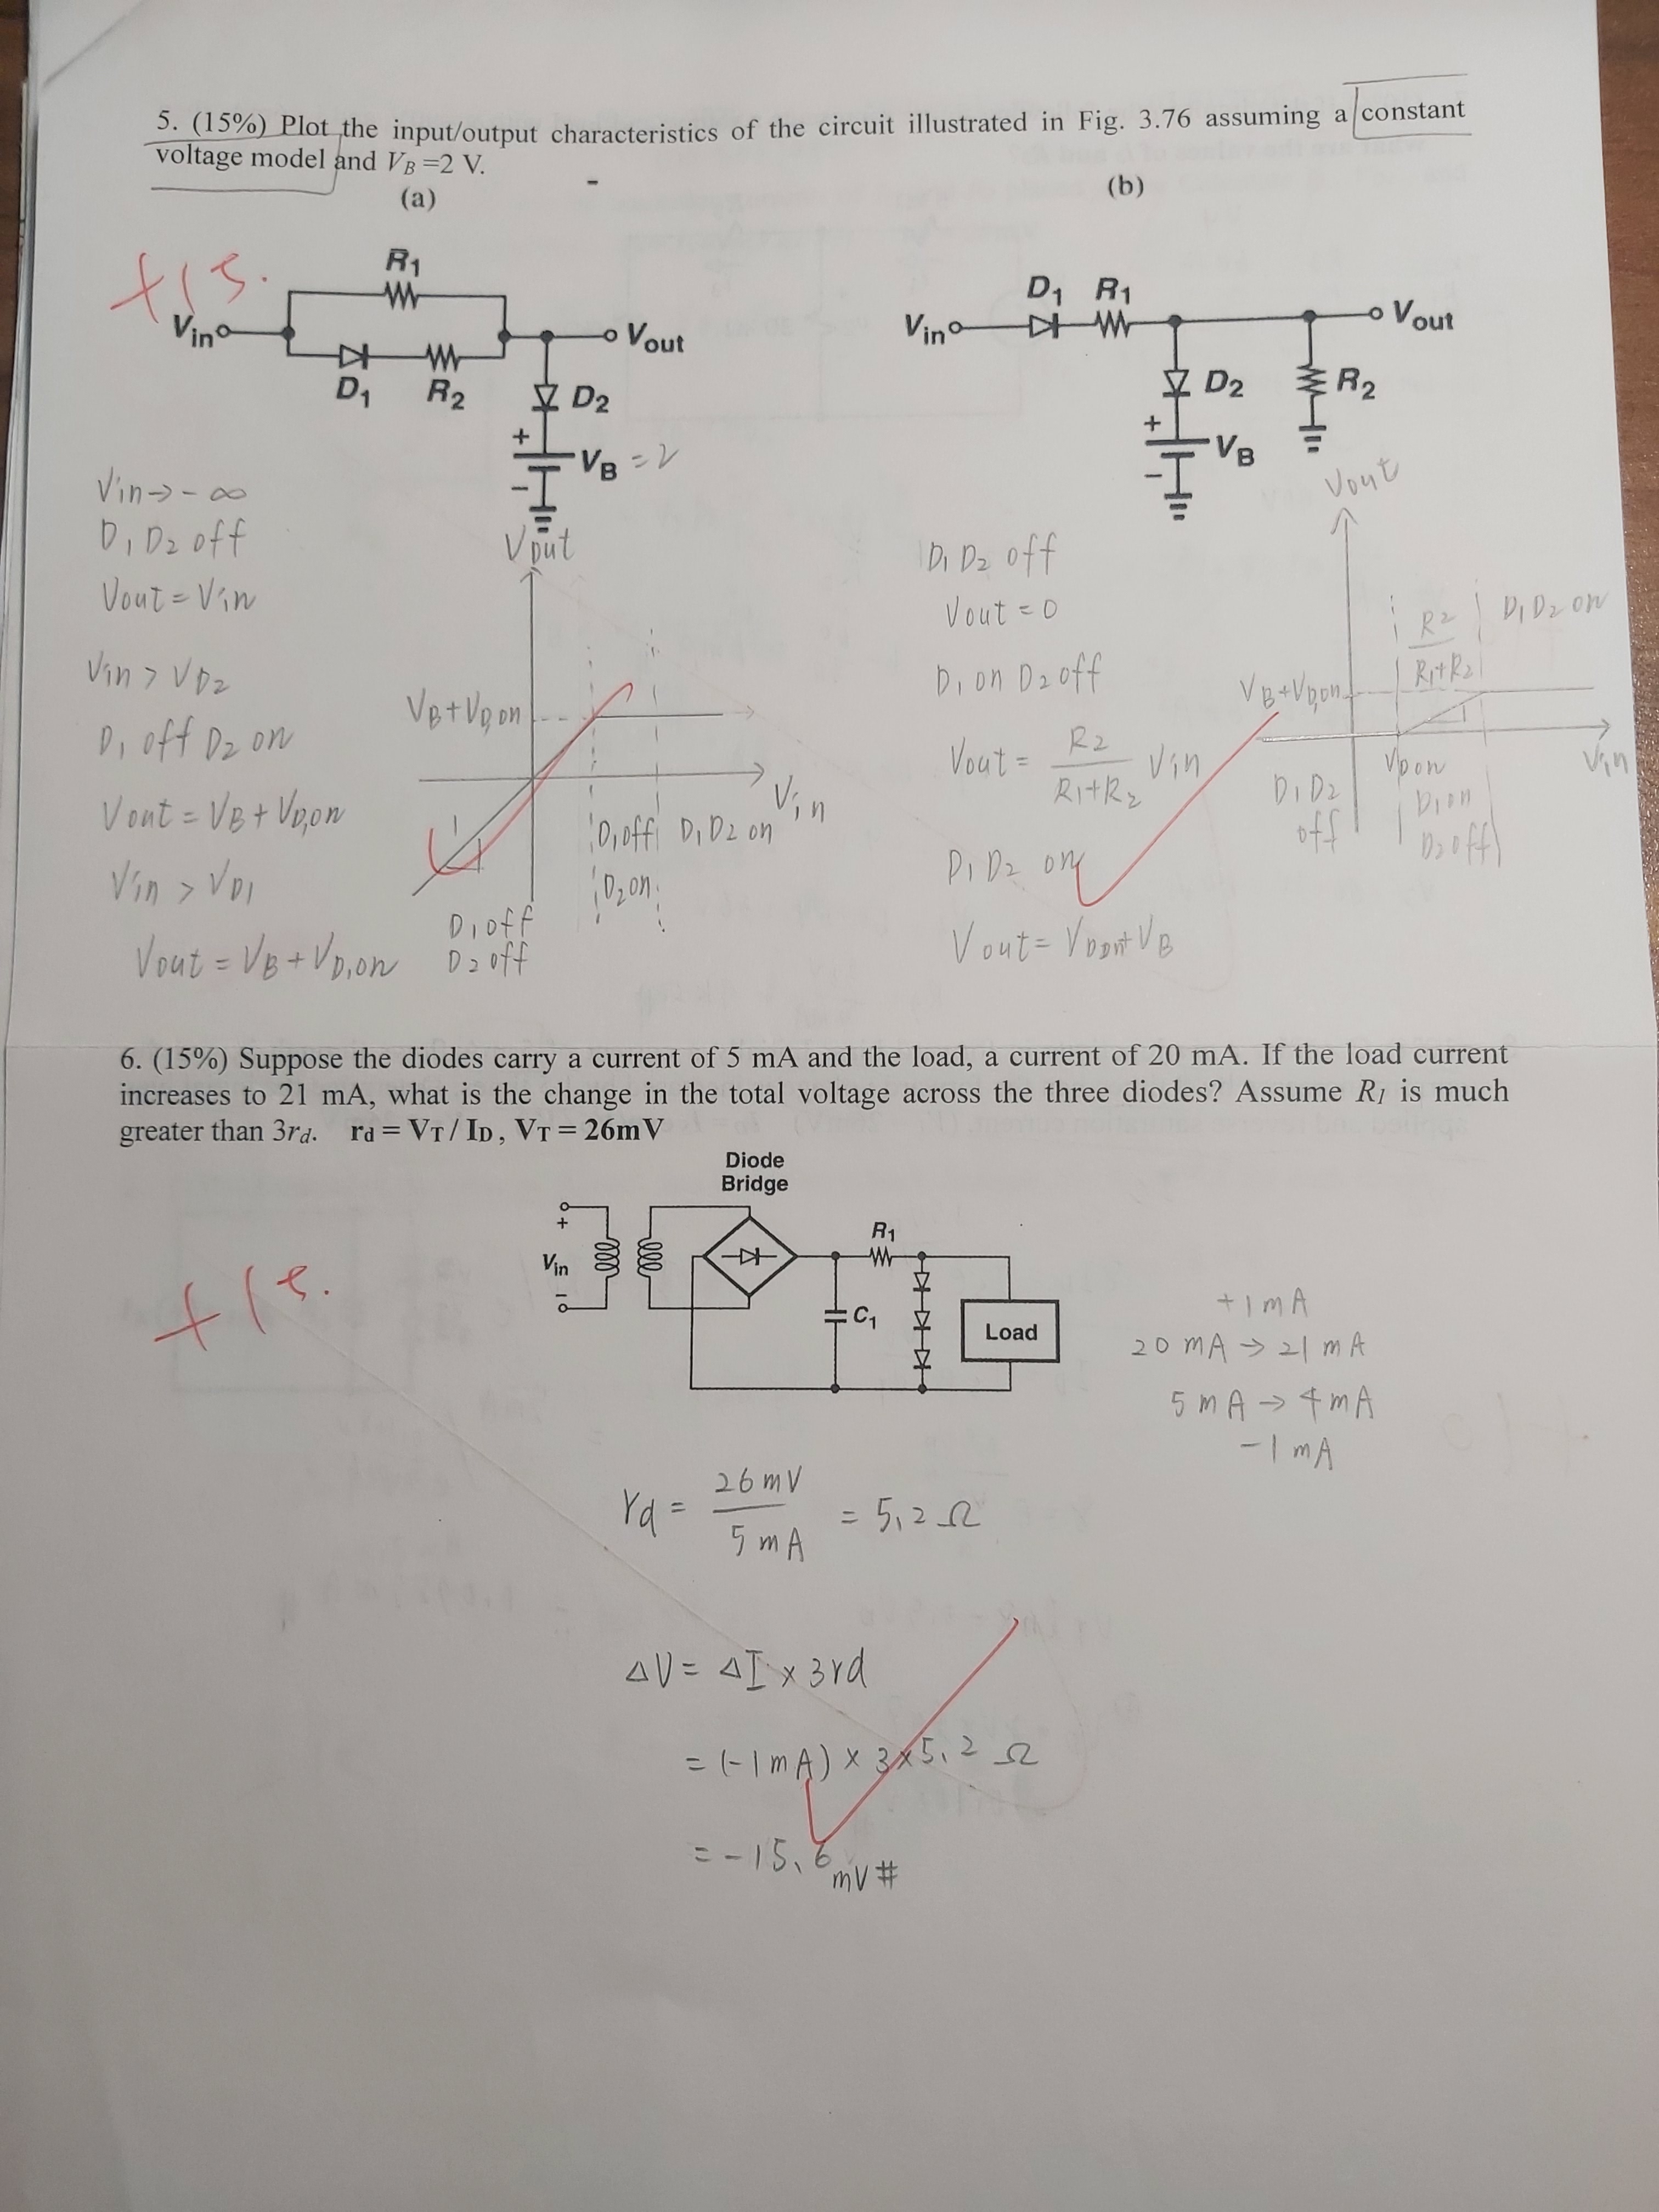 5. (15%) Plot the input/output characteristics of the circuit illustrated in Fig. 3.76 assuming a constant
voltage model and VB =2 V.
(a)
(b)
+15.
R1
Vin
Vout
D1
R2
D2
+
VB = 2
-
D1 R1
Vin
Vout
D2
R2
+
VB
-
Vin → - ∞
D1 D2 off
Vout = Vin
Vin > VD2
D1 off D2 on
Vout = VB + VD,on
Vin > VD1
Vout = VB + VD,on
Vout
VB+VD,on
Vin
1
1
D1 off
D2 on
D1 D2 on
D1 off
D2 off
D1 D2 off
Vout = 0
D1 on D2 off
Vout = R2 / R1+R2 Vin
D1 D2 on
Vout = VD,on+VB
Vout
R2 / R1+R2
D1 D2 on
VB+VD,on
1
Vin
VD,on
D1 D2
off
D1 on
D2 off
6. (15%) Suppose the diodes carry a current of 5 mA and the load, a current of 20 mA. If the load current
increases to 21 mA, what is the change in the total voltage across the three diodes? Assume R1 is much
greater than 3rd. rd = VT / ID , VT = 26mV
+15.
Diode
Bridge
+
Vin
-
R1
C1
Load
+1mA
20 mA → 21 mA
5 mA → 4 mA
-1 mA
rd = 26 mV / 5 mA = 5.2 Ω
ΔV = ΔI × 3rd
= (-1mA) × 3×5.2 Ω
= -15.6 mV #